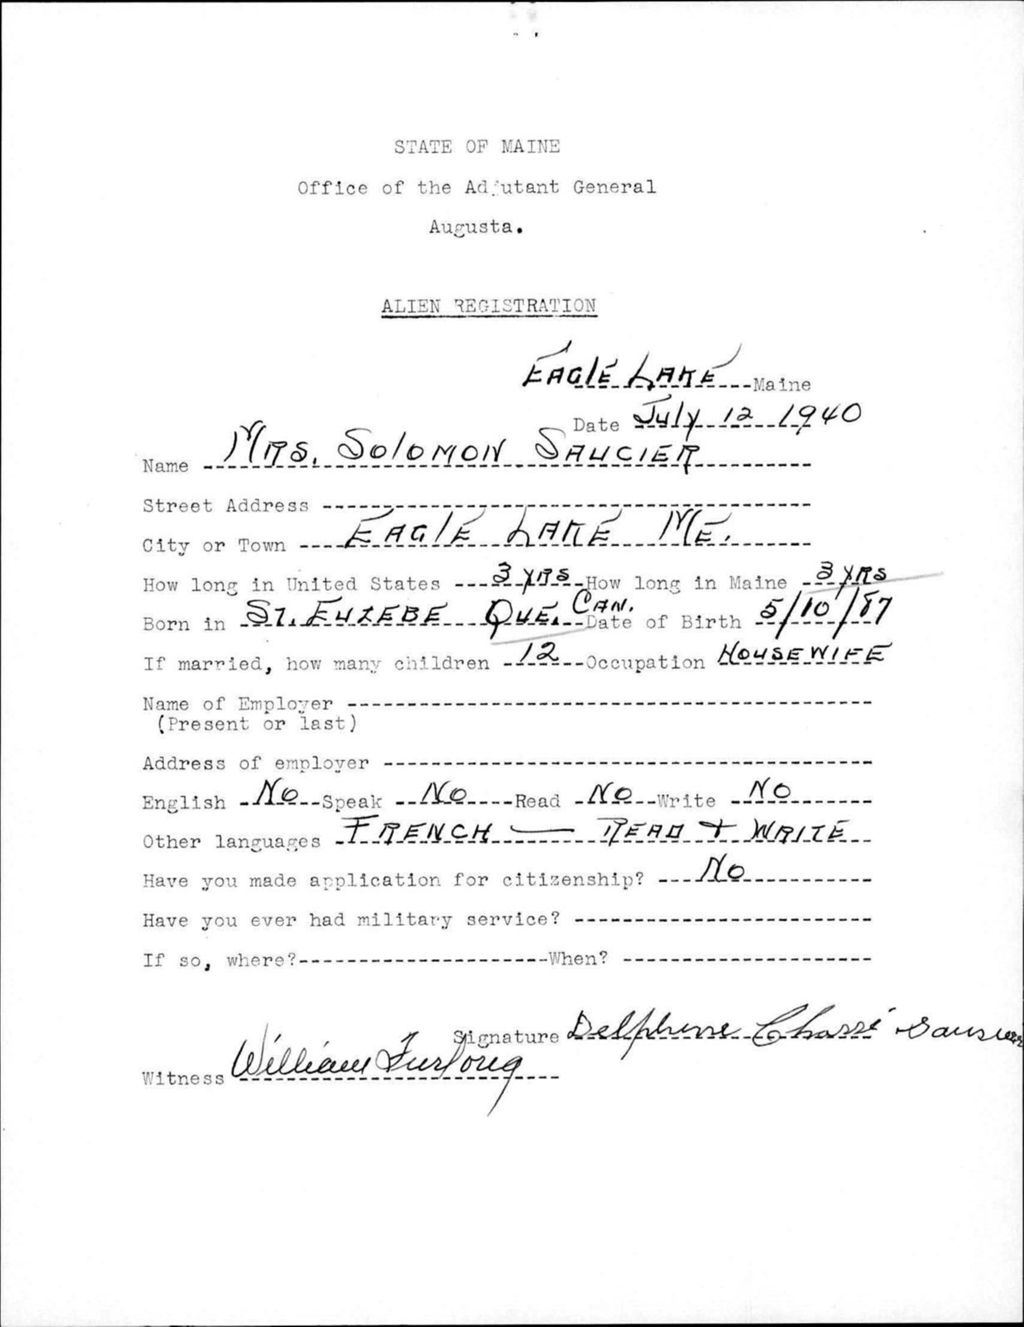 STATE OF MAINE
Office of the Adjutant General
Augusta.
ALIEN REGISTRATION
EAGLE LAKE Maine
Date July 12 1940
Name MRS. SOLOMON SAUCIER
Street Address
City or Town EAGLE LAKE ME.
How long in United States 3 YRS How long in Maine 3 YRS
Born in ST. EUZEBE QUE. CAN. Date of Birth 5/10/87
If married, how many children 12 Occupation HOUSEWIFE
Name of Employer
(Present or last)
Address of employer
English No Speak No Read No Write No
Other languages FRENCH — READ + WRITE
Have you made application for citizenship? No
Have you ever had military service?
If so, where? When?
Signature Delphine Chassé Saucier
Witness William Furlong